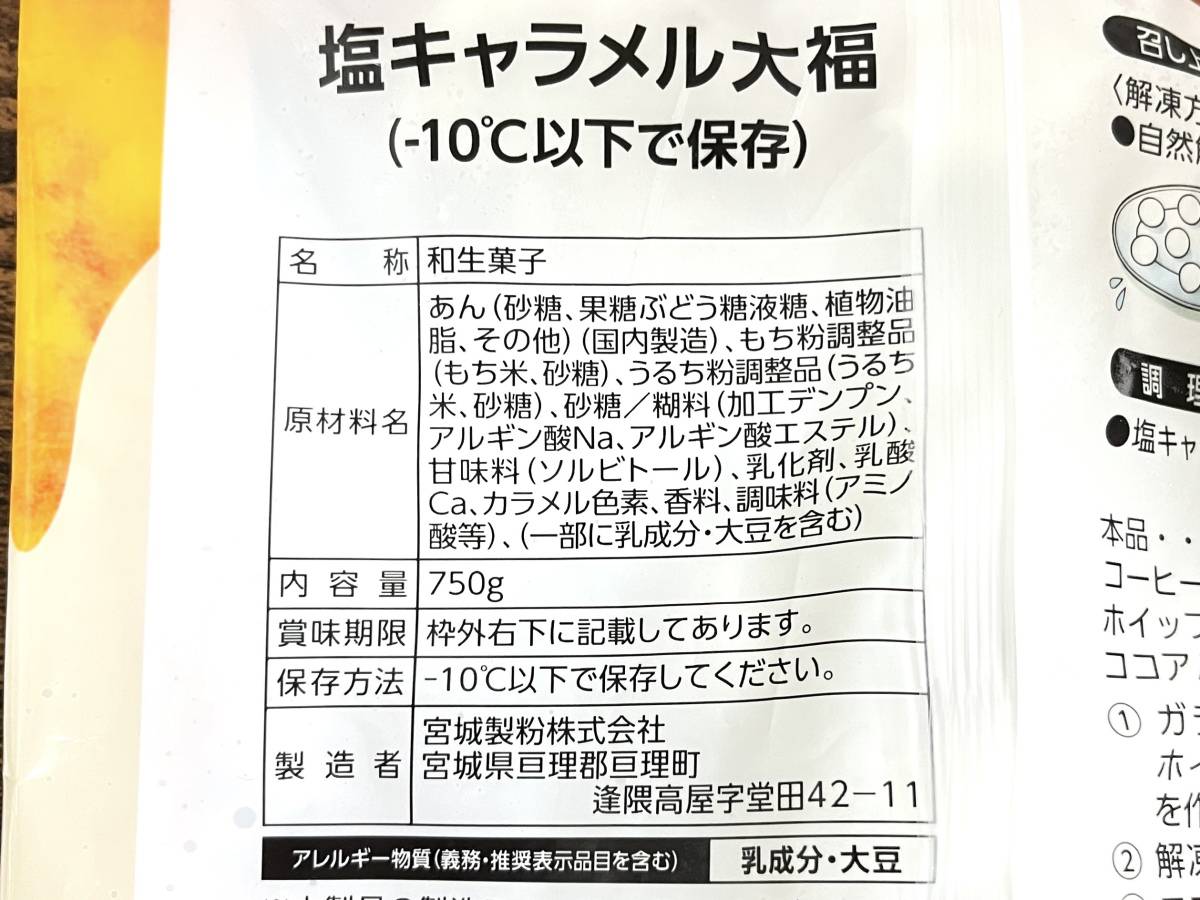 塩キャラメル大福
(-10℃以下で保存)
名称 和生菓子
原材料名
あん(砂糖、果糖ぶどう糖液糖、植物油
脂、その他)(国内製造)、もち粉調整品
(もち米、砂糖)、うるち粉調整品(うるち
米、砂糖)、砂糖/糊料(加工デンプン、
アルギン酸Na、アルギン酸エステル)、
甘味料(ソルビトール)、乳化剤、乳酸
Ca、カラメル色素、香料、調味料(アミノ
酸等)、(一部に乳成分・大豆を含む)
内容量 750g
賞味期限 枠外右下に記載してあります。
保存方法 -10℃以下で保存してください。
製造者
宮城製粉株式会社
宮城県亘理郡亘理町
逢隈高屋字堂田42-11
アレルギー物質(義務・推奨表示品目を含む) 乳成分・大豆
召し
〈解凍方
●自然
調理
●塩キャ
本品・・
コーヒー
ホイップ
ココア
① ガラ
ホイ
を作
② 解凍